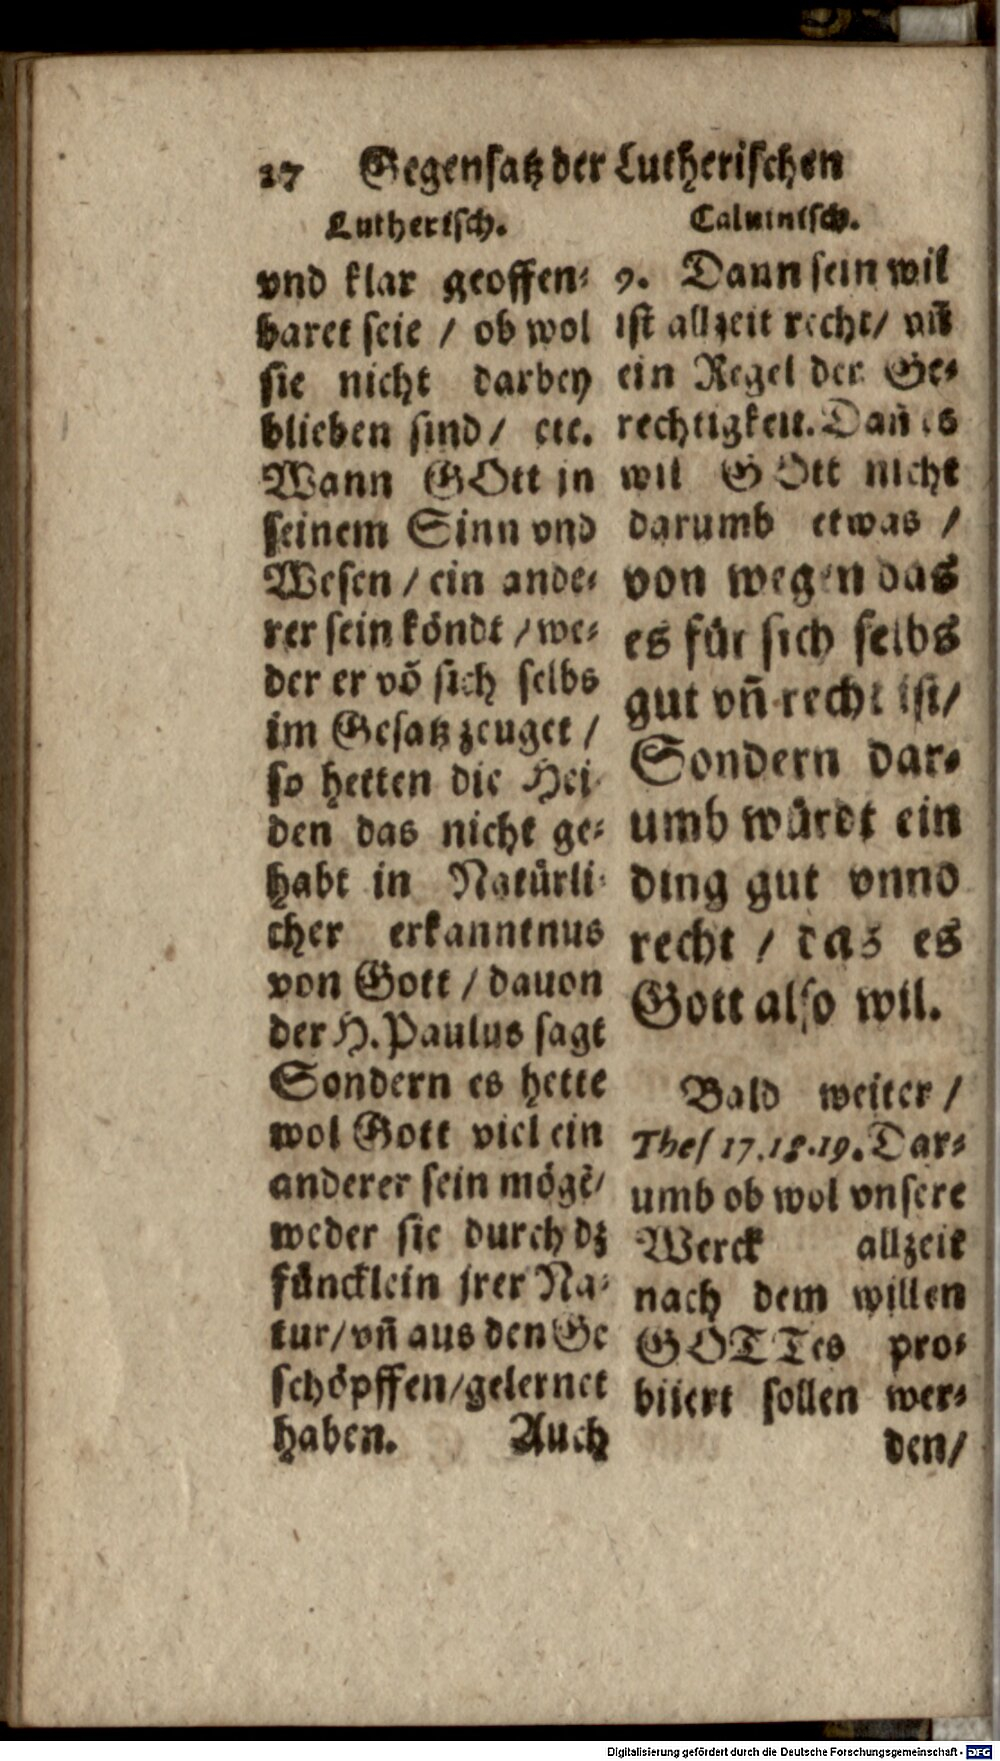 27 Gegensatz der Lutherischen
Lutherisch.
vnd klar geoffen-
baret seie / ob wol
sie nicht darbey
blieben sind / etc.
Wann GOtt in
seinem Sinn vnd
Wesen / ein ande-
rer sein köndt / we-
der er võ sich selbs
im Gesatz zeuget /
so hetten die Hei-
den das nicht ge-
habt in Natürli-
cher erkanntnus
von Gott / dauon
der H. Paulus sagt
Sondern es hette
wol Gott viel ein
anderer sein mögẽ /
weder sie durch dz
füncklein jrer Na-
tur / vñ aus den Ge
schöpffen / gelernet
haben. Auch
Caluinisch.
9. Dann sein wil
ist allzeit recht / vñ
ein Regel der Ge-
rechtigkeit. Dañ es
wil GOtt nicht
darumb etwas /
von wegen das
es für sich selbs
gut vñ recht ist /
Sondern dar-
umb würdt ein
ding gut vnnd
recht / das es
Gott also wil.
Bald weiter /
Thes 17. 18. 19. Dar-
umb ob wol vnsere
Werck allzeit
nach dem willen
GOTTes pro-
biiert sollen wer-
den /
Digitalisierung gefördert durch die Deutsche Forschungsgemeinschaft - DFG